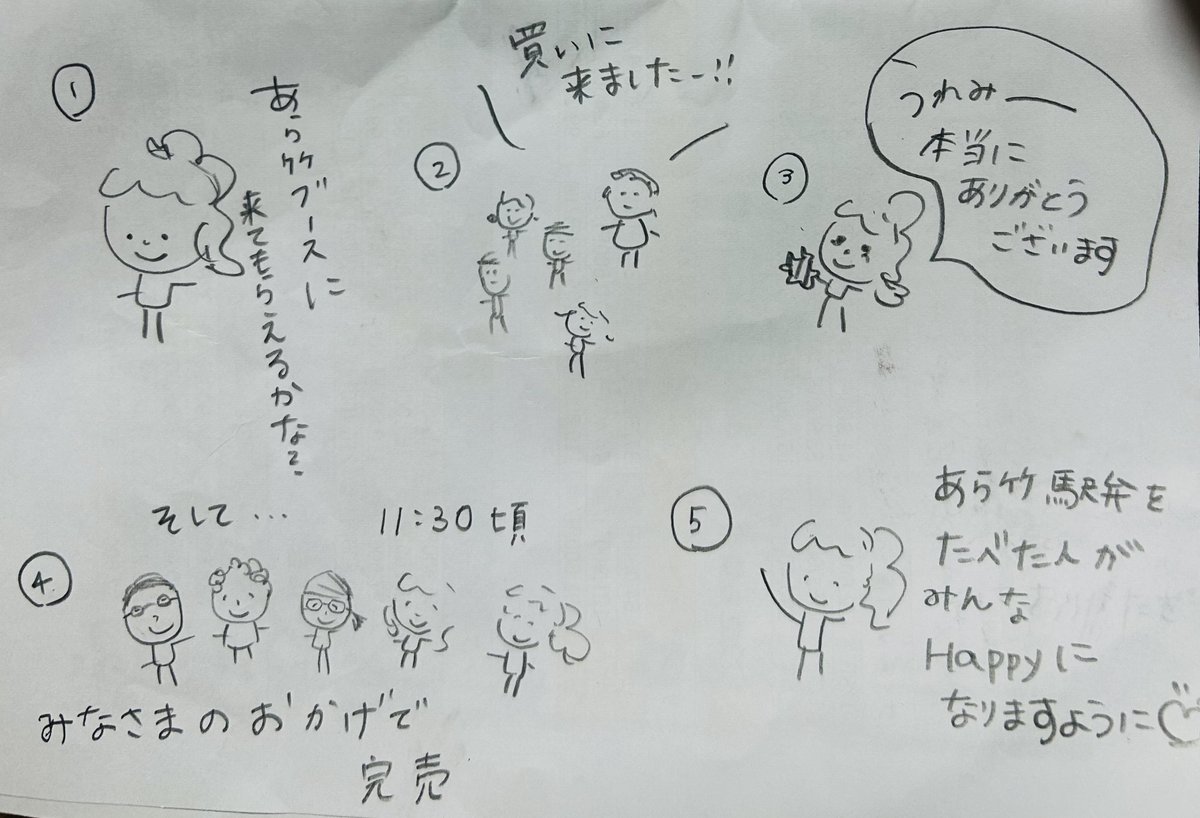 ①
あら竹ブースに
来てもらえるかな?
②
買いに
来ましたー!!
③
うれみー
本当に
ありがとう
ございます
④
そして… 11:30頃
みなさまのおかげで
完売
⑤
あら竹駅弁を
たべた人が
みんな
Happyに
なりますように